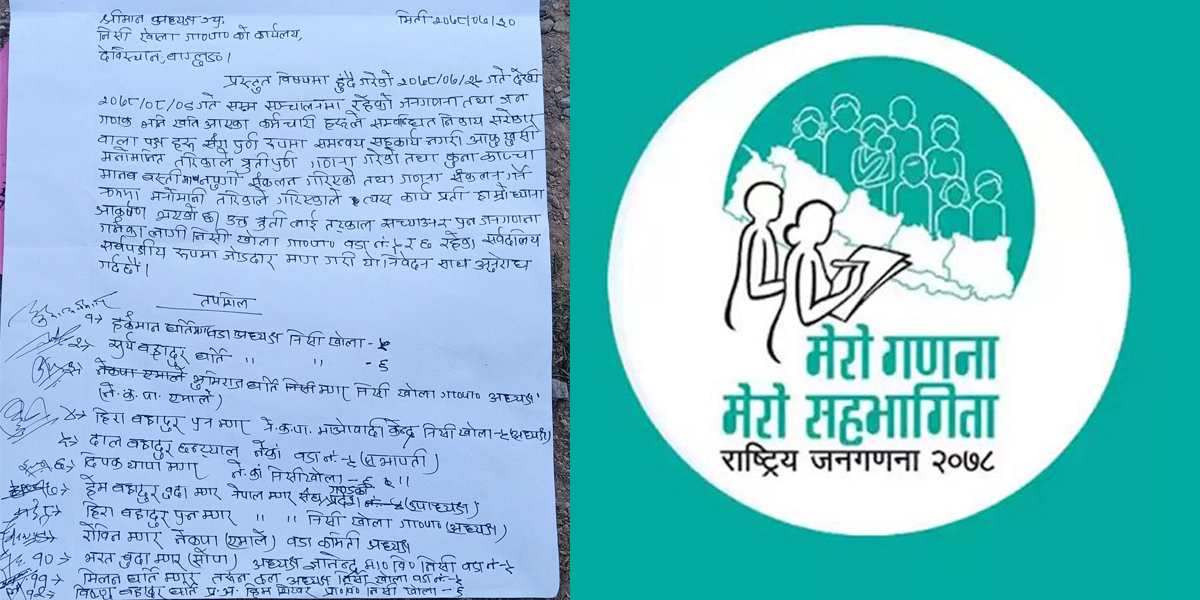 श्रीमान अध्यक्ष ज्यु, मिती २०७८/०८/१०
निसी खोला गा०पा० को कार्यलय,
देविस्थान, बाग्लुङ।
प्रस्तुत विषयमा हुँदै गरेको २०७८/०७/२५ गते देखी
२०७८/०८/०८ गते सम्म सञ्चालनमा रहेको जनगणना तथा जन
गणक भनि खटि आएका कर्मचारी हरुले सम्बन्धित निकाय सरोकार
वाला पक्ष हरु सँग पुर्ण रुपमा समन्वय सहकार्य नगरी आफु खुसी
मनोमानित तरिकाले त्रुतीपुर्ण गणना गरेको तथा कुना काप्चा
मानव वस्ती संकलन गरिएको तथा गणना संकलन गर्ने
मनोमानी तरिकाले गरिएकाले त्यस कार्य प्रती हाम्रो ध्यान
आकर्षण भएको छ। उक्त त्रुती लाई तत्काल सच्याएर पुन जनगणना
गर्नका लागी निसी खोला गा०पा० वडा नं ५ र ६ रहेका सर्वदलिय
सर्वपक्षीय रुपमा जोडदार माग गरी यो निवेदन साथ अनुरोध
गर्दछौं।
तपशिल
१→ हर्कमान घर्तिमगर वडा अध्यक्ष निसी खोला - ५
२→ सुर्य बहादुर घर्ति " " - ६
३→ नेकपा एमाले भुमिराज घर्ति मगर निसी खोला गा०पा० अध्यक्ष
(ने.क.पा. एमाले)
४→ हिरा बहादुर पुन मगर ने.क.पा. माओवादी केन्द्र निसी खोला - ५ (अध्यक्ष)
५→ दाल बहादुर छन्त्याल नेकां वडा नं - ५ (सभापती)
६→ दिपक थापा मगर ने.कां निसीखोला - ६ "
७→ हेम बहादुर बुढा मगर नेपाल मगर संघ गण्डकी प्रदेश (उपाध्यक्ष)
८→ हिरा बहादुर पुन मगर " " निसी खोला गा०पा० (अध्यक्ष)
९→ रोवित मगर नेकपा (एमाले) वडा कमिती अध्यक्ष
१०→ भरत बुढा मगर (सोपा) अध्यक्ष ज्ञानेन्द्र मा०वि० निसी वडा नं - ५
११→ मिलन घर्ति मगर तरुन दल अध्यक्ष निसी खोला वडा नं - ५
१२→ विष्णु बहादुर घर्ति प्र.अ. हिम शिखर प्रा०वि० निसी खोला - ६
मेरो गणना
मेरो सहभागिता
राष्ट्रिय जनगणना २०७८